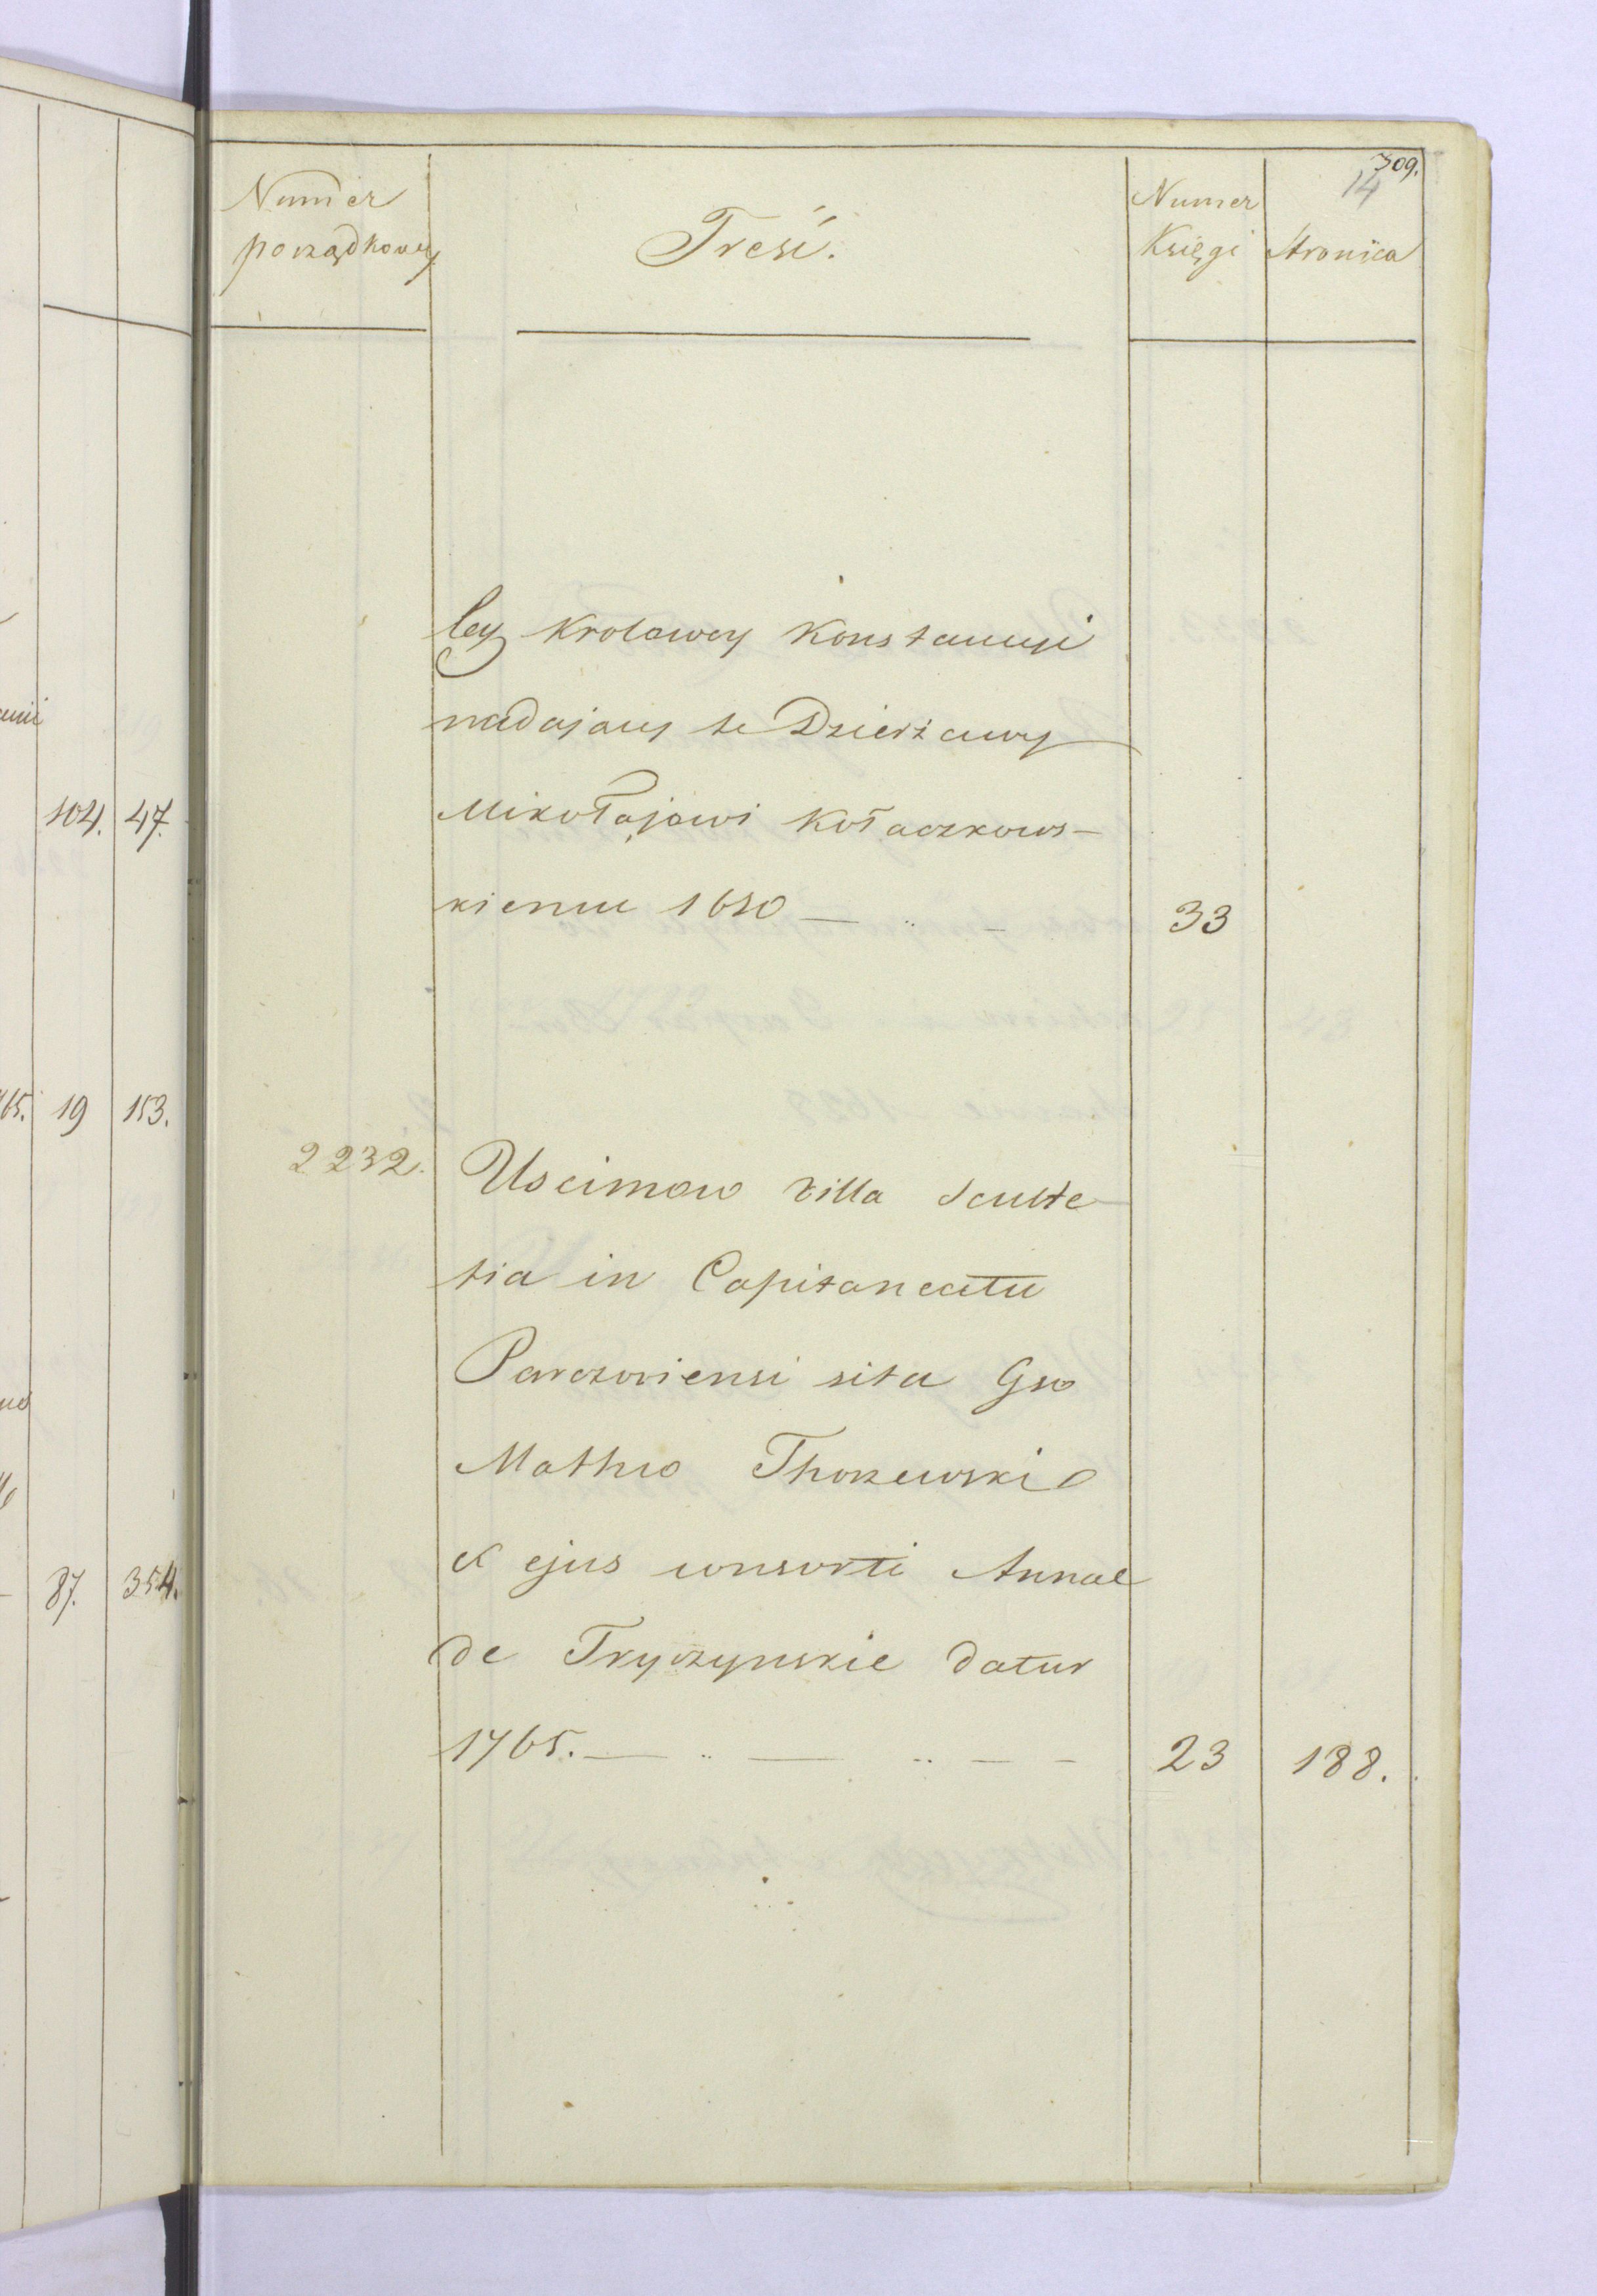 309.
14
Numer porządkowy
Treść.
Numer Księgi
Stronica
ley Krolowey Konstancyi
nadający te Dzierżawy
Mikołajowi Kołaczkows-
kiemu 1620 — .. —
33
2232.
Uscimow villa Sculte
tia in Capitaneatu
Parczoviensi sita Gso
Mathio Thorzewski
et ejus consorti Annae
de Tryczynskie datur
1765. — .. — .. — —
23
188.
104. 47.
65. 19 153.
87. 354.